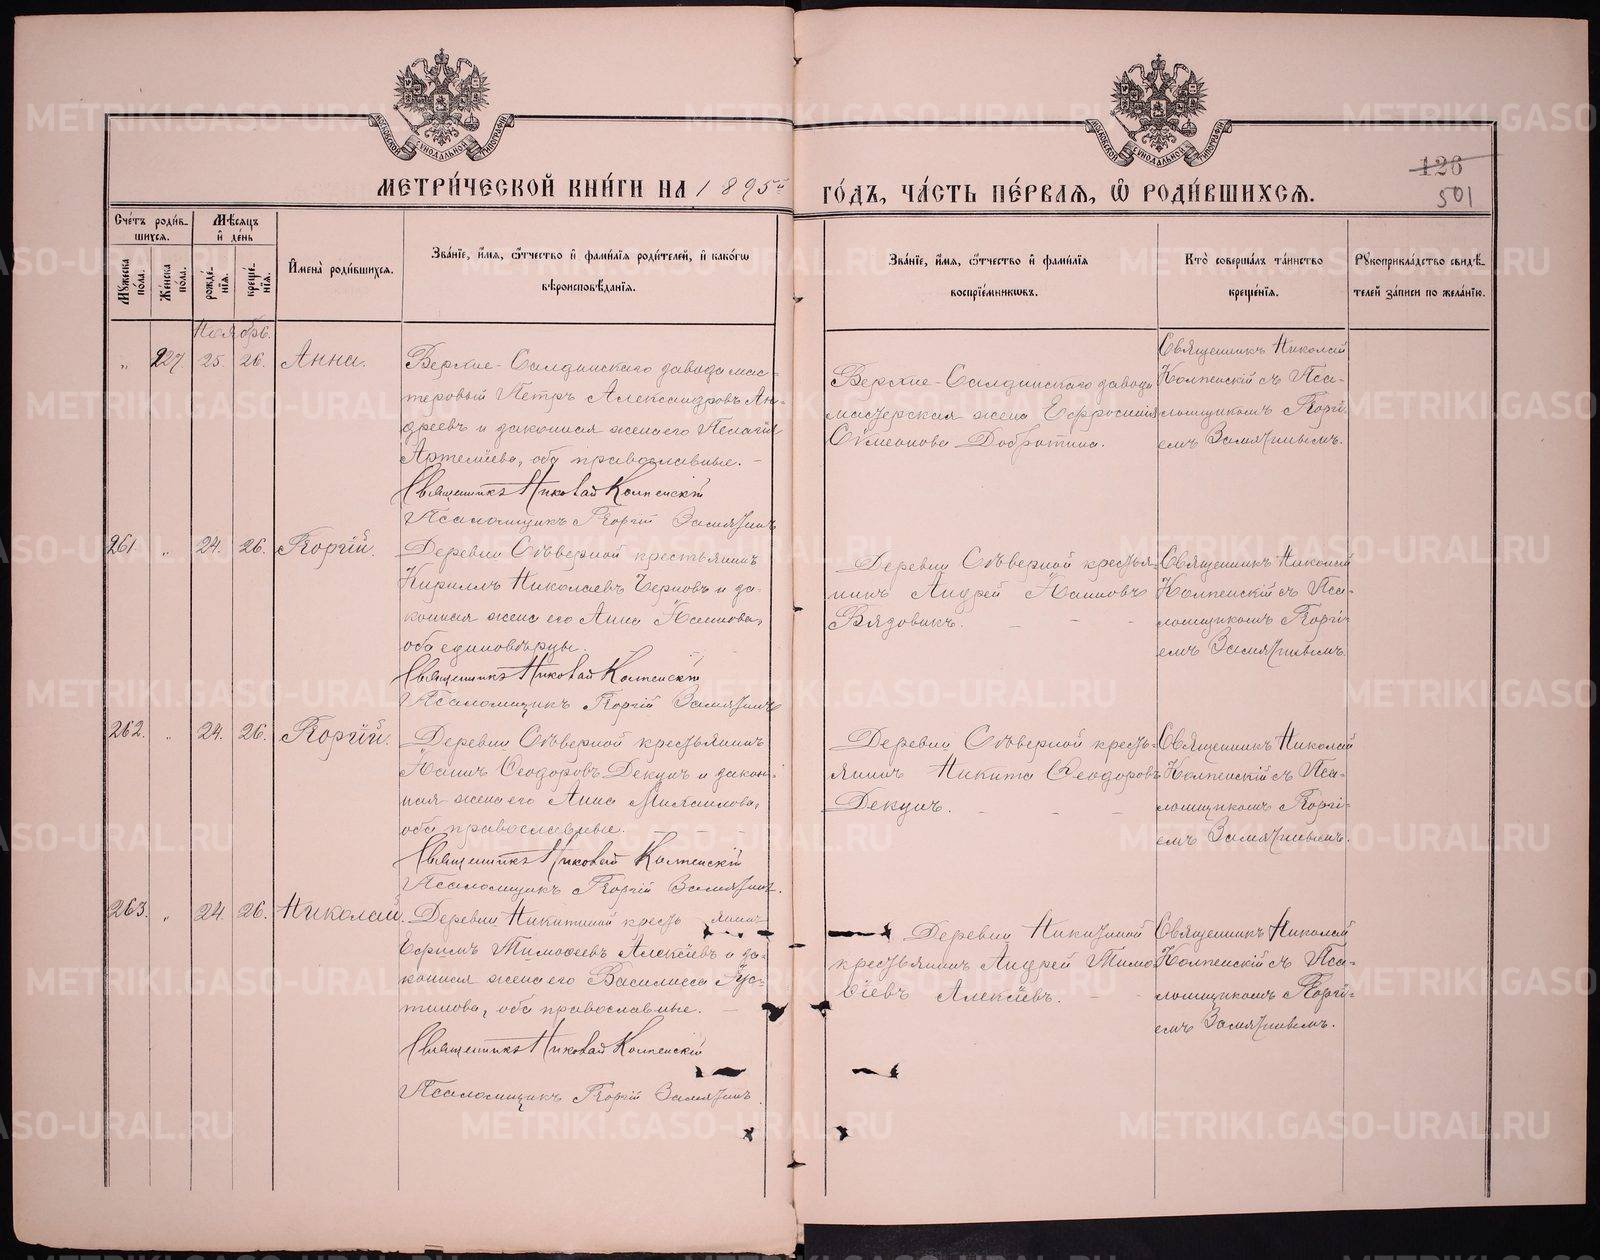 МОСКОВСКОЙ СѴНОДАЛЬНОЙ ТИПОГРАФІИ
МОСКОВСКОЙ СѴНОДАЛЬНОЙ ТИПОГРАФІИ
126
501
МЕТРИ́ЧЕСКОЙ КНИ́ГИ НА 1895й
ГО́ДЪ, ЧА́СТЬ ПЕ́РВАЯ, Ѿ РОДИ́ВШИХСЯ.
Сче́тъ роди́в-
шихся.
Мужеска по́ла.
Же́нска по́ла.
Мѣ́сяцъ
и де́нь
рожде́-
нїѧ.
креще́-
нїѧ.
Имена̀ роди́вшихся.
Зва́нїе, и́мя, ѻ҆́тчество и҆ фами́лїѧ роди́телей, и҆ како́гѡ
вѣроисповѣ́данїѧ.
Зва́нїе, и́мя, ѻ҆́тчество и҆ фами́лїѧ
воспрїе́мникѡвъ.
Кто̀ соверша́лъ та́инство
креще́нїѧ.
Рꙋкоприкла́дство свидѣ́-
телей за́писи по жела́нїю.
Ноябрь.
„ 227. 25. 26. Анна.
Верхне-Салдинскаго завода мас-
теровый Петръ Александровъ Ан-
дреевъ и законная жена его Пелагія
Артеміева, оба православные. –
Священникъ Николай Колпенскій
Псаломщикъ Георгій Замятинъ
Верхне-Салдинскаго завода
мастерская жена Ефросинія
Симеонова Добротина.
Священникъ Николай
Колпенскій съ Пса-
ломщикомъ Георгі-
емъ Замятинымъ.
261 „ 24. 26. Георгій.
Деревни Сѣверной крестьянинъ
Кириллъ Николаевъ Черновъ и за-
конная жена его Анна Іоаннова,
оба единовѣрцы.
Священникъ Николай Колпенскій
Псаломщикъ Георгій Замятинъ
Деревни Сѣверной крестья-
нинъ Андрей Іоанновъ
Вядовикъ. – – –
Священникъ Николай
Колпенскій съ Пса-
ломщикомъ Георгі-
емъ Замятинымъ.
262. „ 24. 26. Георгій.
Деревни Сѣверной крестьянинъ
Іоаннъ Ѳеодоровъ Декунъ и закон-
ная жена его Анна Михаилова,
оба православные. – – –
Священникъ Николай Колпенскій
Псаломщикъ Георгій Замятинъ.
Деревни Сѣверной кресть-
янинъ Никита Ѳеодоровъ
Декунъ. – – –
Священникъ Николай
Колпенскій съ Пса-
ломщикомъ Георгі-
емъ Замятинымъ.
263. „ 24. 26. Николай.
Деревни Никитиной кресть янинъ
Ефимъ Тимоѳеевъ Алексіевъ и за-
конная жена его Василиса Іус-
тинова, оба православные. –
Священникъ Николай Колпенскій
Псаломщикъ Георгій Замятинъ
Деревни Никитиной
крестьянинъ Андрей Тимо-
ѳіевъ Алексіевъ. – –
Священникъ Николай
Колпенскій съ Пса-
ломщикомъ Георгі-
емъ Замятинымъ.
METRIKI.GASO-URAL.RU